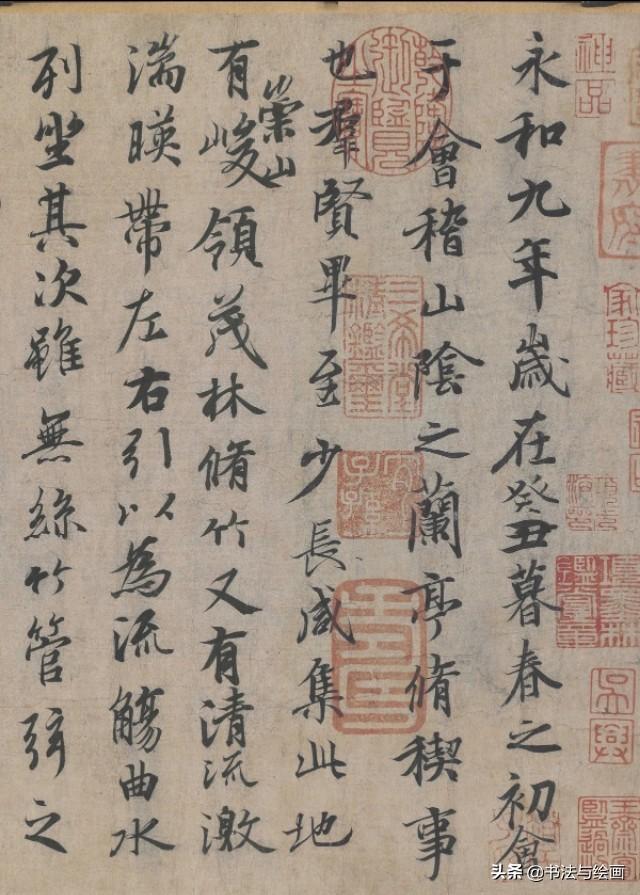 神品
永和九年歲在癸丑暮春之初會
于會稽山陰之蘭亭脩稧事
也羣賢畢至少長咸集此地
有崇山峻領茂林脩竹又有清流激
湍暎帶左右引以為流觴曲水
列坐其次雖無絲竹管弦之
三希堂精鑑璽
宜子孫
家珍藏
头条 @书法与绘画